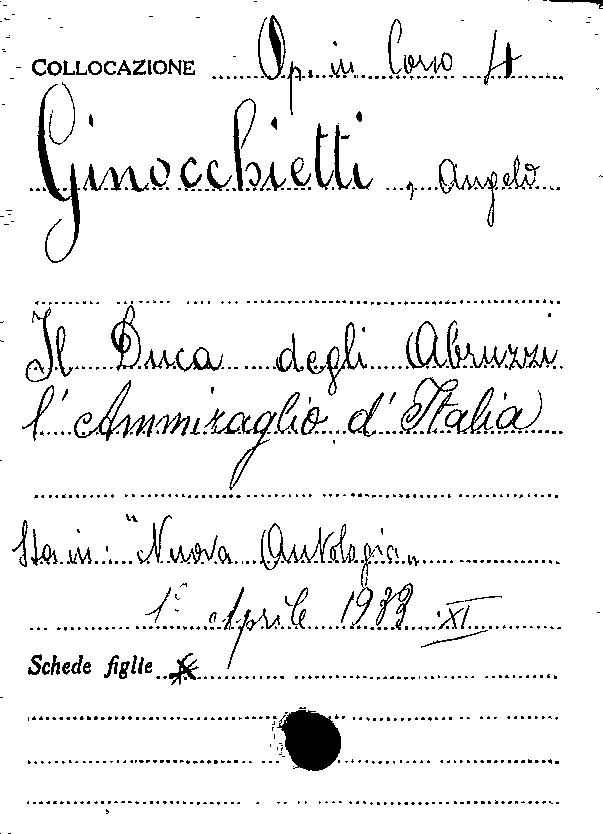 COLLOCAZIONE Op. in Corso 4
Ginocchietti, Angelo
Il Duca degli Abruzzi
l'Ammiraglio d'Italia
Sta in: "Nuova Antologia"
1° Aprile 1933 XI
Schede figlie